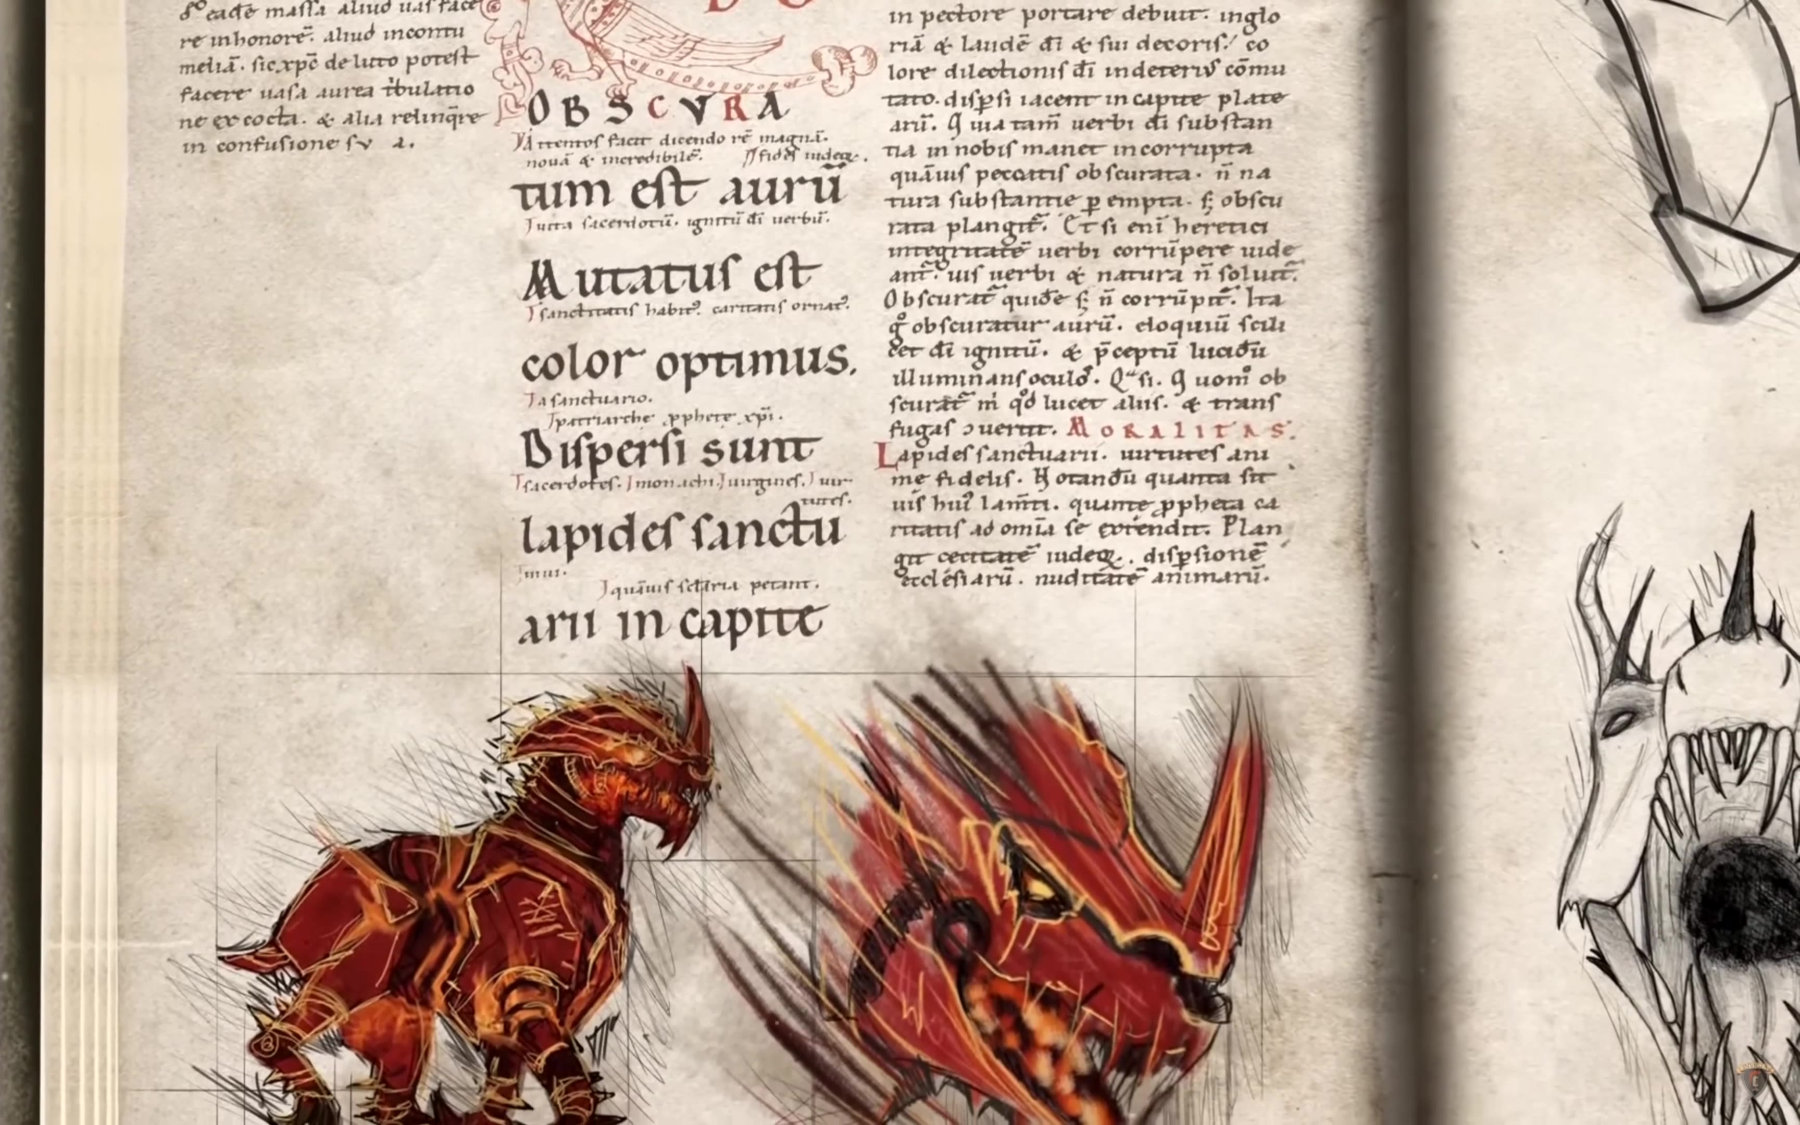 re inhonorē. aliud incontu
meliā. sic xp̄c de luto potest
facere uasa aurea t̄bulatio
ne excocta. & alia relinq̄re
in confusione
OBSCVRA
Attentos facit dicendo rē magnā.
nouā & incredibilē.
tum est aurū
sacerdotū. ignitū dī uerbū.
Mutatus est
sanctitatis habit᾽. caritatis ornat᾽.
color optimus.
A sanctuario.
patriarche p̄phete xp̄i.
Dispersi sunt
sacerdotes. monachi. uirgines. uir-
tutes.
lapides sanctu
quāuis petant.
arii in capite
in pectore portare debuit. inglo
riā & laudē dī & sui decoris. co
lore dilectionis dī in deteriᷣ cōmu
tato. disp̄si iacent in capite plate
arū. Quia tam̄ uerbi dī substan
tia in nobis manet incorrupta
quāuis peccatis obscurata. n̄ na
tura substantie p̲empta. s; obscu
rata plangit᷑. Et si eni᷑ heretici
integritatē uerbi corrūpere uide
ant᷑. uis uerbi & natura n̄ soluit᷑.
Obscurat᷑ quidē s; n̄ corrūpit᷑. Ita
g̊ obscuratur aurū. eloquiū scili
cet dī ignitū. & p̄ceptū lucidū
illuminans oculos. Qᵃsi. Quom̊ ob
scurat᷑ m̄ qd̄ lucet aliis. & trans
fugas ɔuertit. MORALITAS.
Lapides sanctuarii. uirtutes ani
me fidelis. Notandū quanta sit
uis hui᾽ lam̄ti. quante p̄pheta ca
ritatis ad omīa se extendit. Plan
git cecitatē iudeoꝝ. disp̄sionē
ecclesiarū. nuditatē animarū.